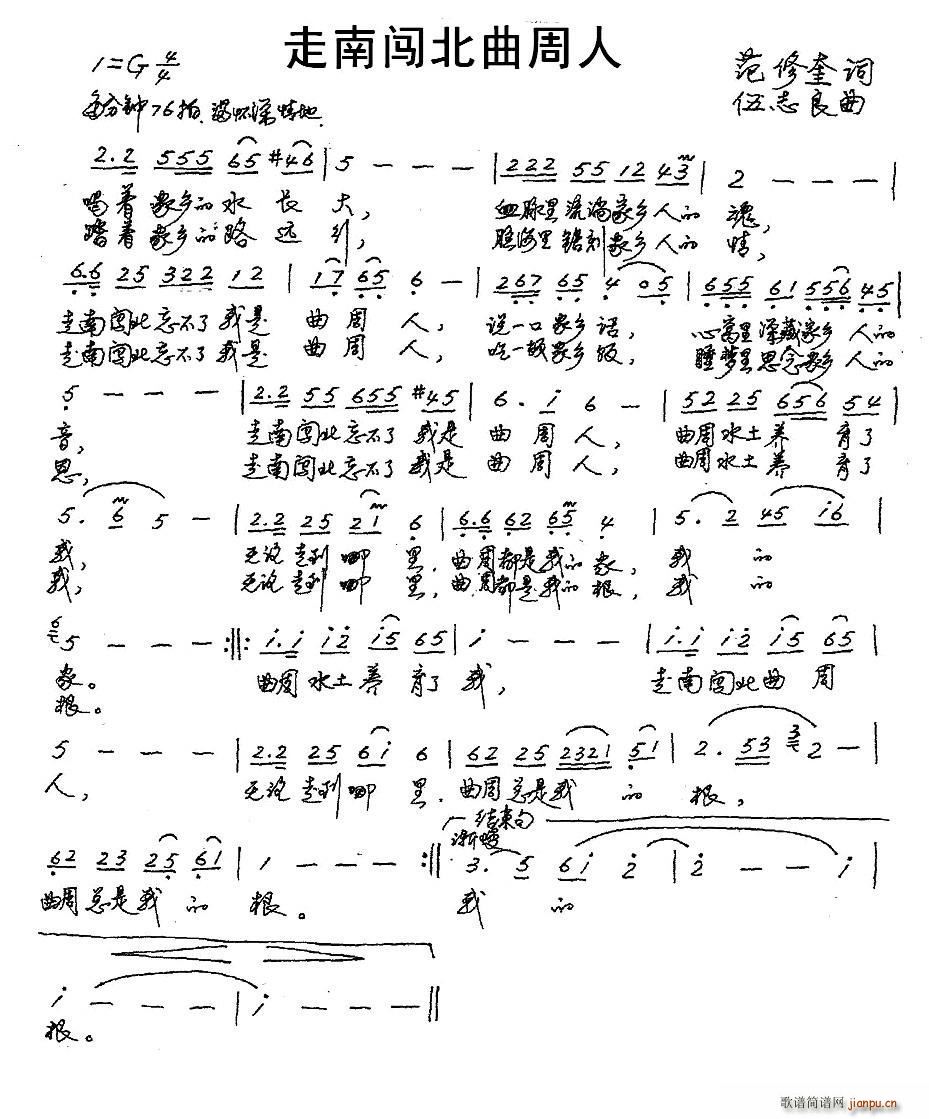 走南闯北曲周人
1=G 4/4
范修奎词
伍志良曲
每分钟76拍 满怀深情地
2.2 555 65 #46 | 5 - - - | 222 55 12 43 | 2 - - - |
喝着家乡的水长大, 血脉里流淌家乡人的魂,
踏着家乡的路远行, 脑海里镌刻家乡人的情,
6.6 25 322 12 | 17 65 6 - | 267 65 4 05 | 655 61 556 45 |
走南闯北忘不了我是曲周人, 说一口家乡话, 心窝里深藏家乡人的
走南闯北忘不了我是曲周人, 吃一顿家乡饭, 睡梦里思念家乡人的
5 - - - | 2.2 55 655 #45 | 6. i 6 - | 52 25 656 54 |
音, 走南闯北忘不了我是曲周人, 曲周水土养育了
恩, 走南闯北忘不了我是曲周人, 曲周水土养育了
5. 6 5 - | 2.2 25 21 6 | 6.6 62 65 4 | 5. 2 45 i6 |
我, 无论走到哪里, 曲周都是我的家, 我的
我, 无论走到哪里, 曲周都是我的根, 我的
6 5 - - - :||: i.i i2 i5 65 | i - - - | i.i i2 i5 65 |
家。 曲周水土养育了我, 走南闯北曲周
根。
5 - - - | 2.2 25 6i 6 | 62 25 2321 51 | 2. 53 3 2 - |
人, 无论走到哪里, 曲周总是我的根,
结束句
渐慢
62 23 25 61 | 1 - - - :|| 3. 5 6i 2 | 2 - - i |
曲周总是我的根。 我的
i - - - | i - - - ||
根。
歌谱简谱网
jianpu.cn